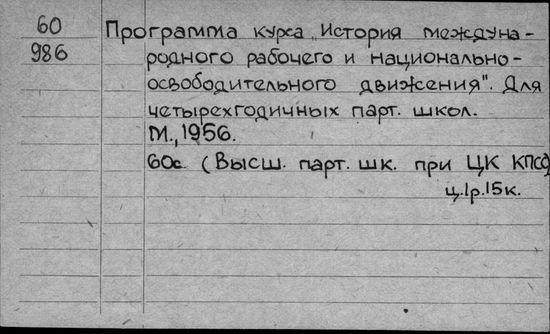 60
986
Программа курса „История междуна-
родного рабочего и национально-
освободительного движения". Для
четырехгодичных парт. школ.
М., 1956.
60с. (Высш. парт. шк. при ЦК КПСС)
ц. 1р. 15к.